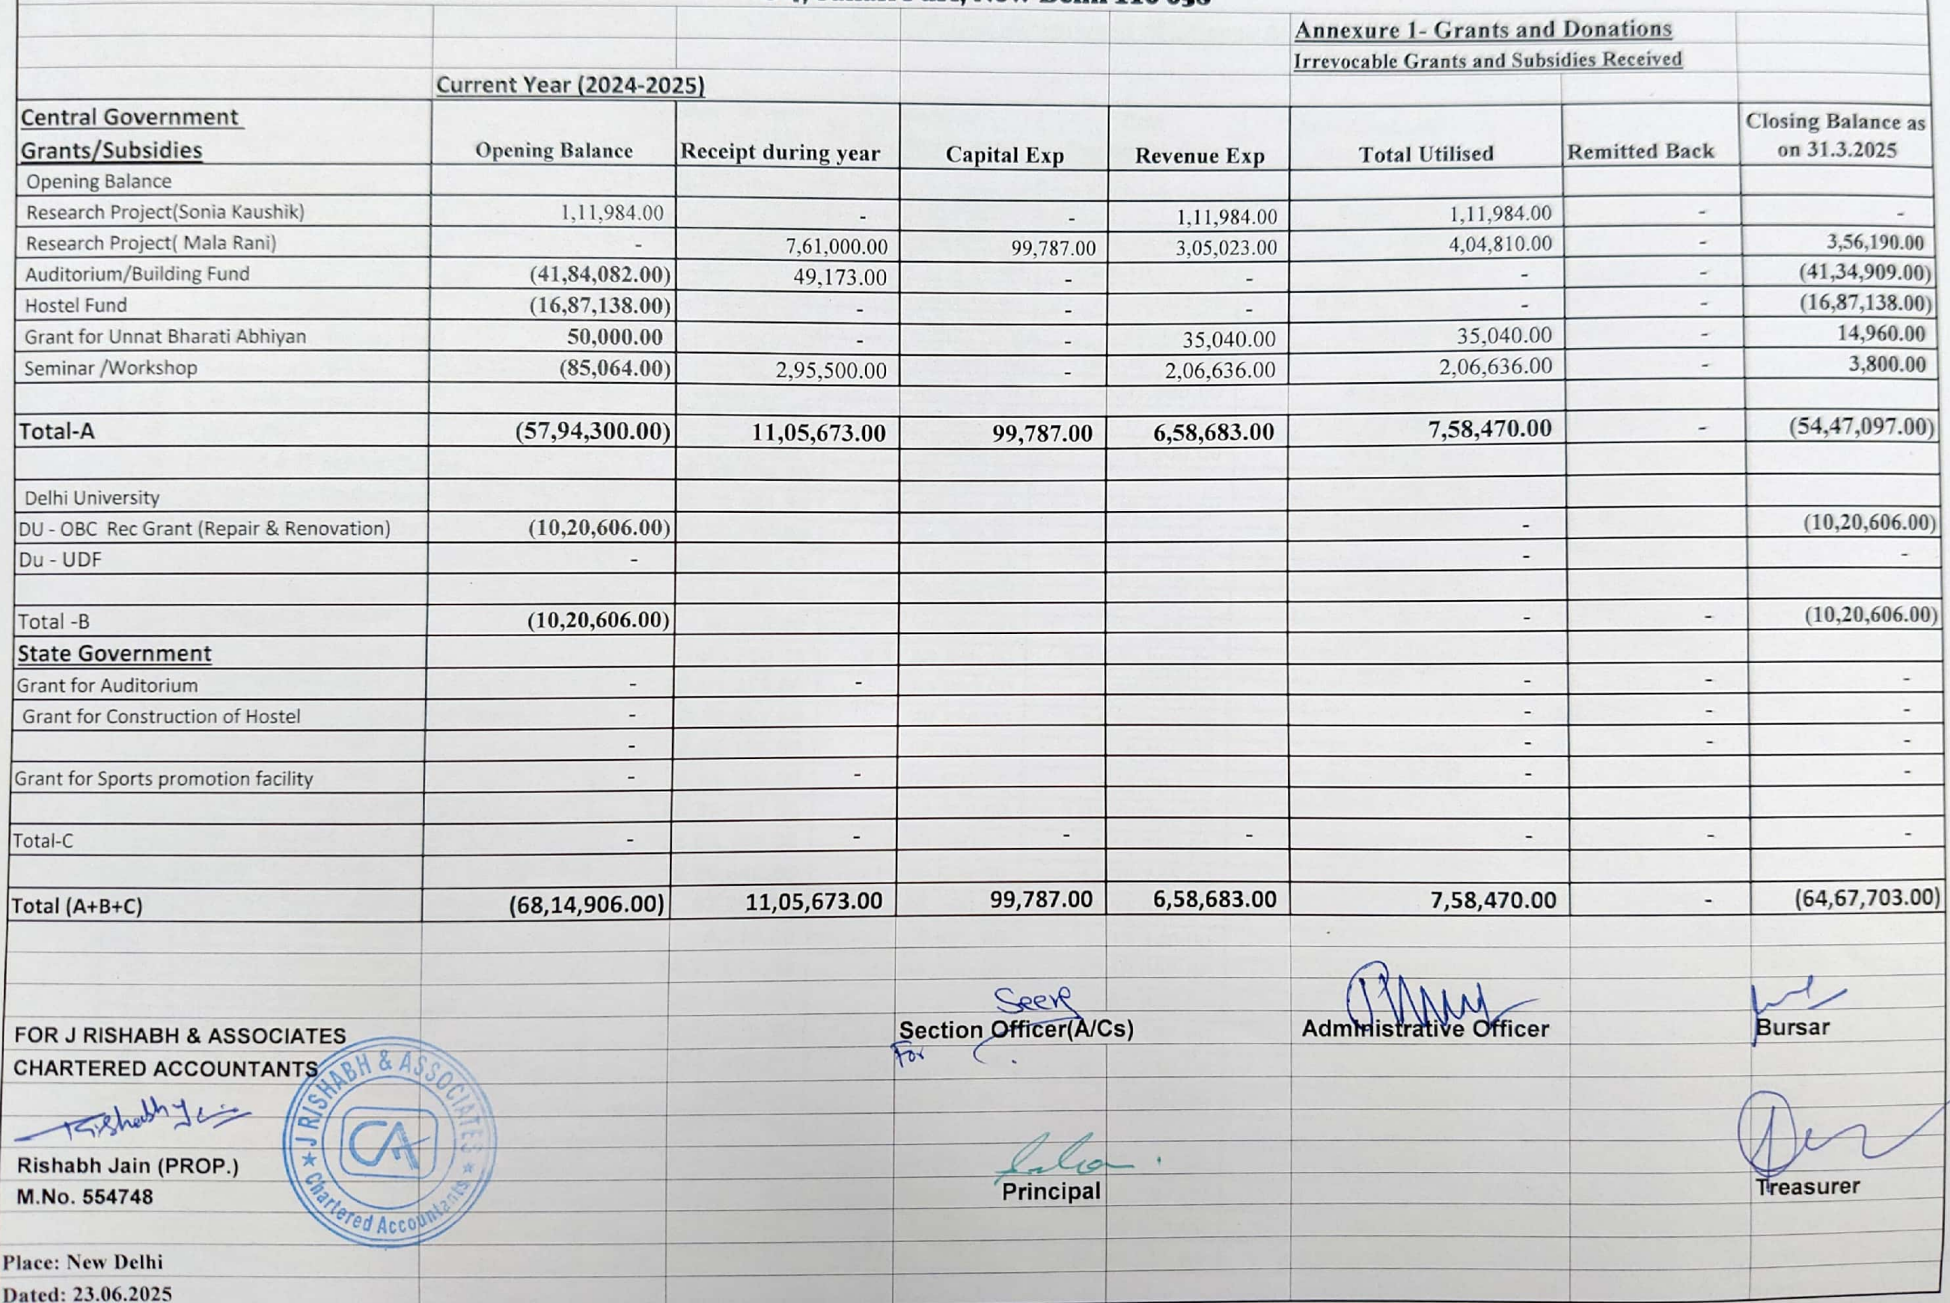 New Delhi 110 058
Annexure 1- Grants and Donations
Irrevocable Grants and Subsidies Received
Current Year (2024-2025)
Central Government Grants/Subsidies Opening Balance Receipt during year Capital Exp Revenue Exp Total Utilised Remitted Back Closing Balance as on 31.3.2025
Opening Balance
Research Project(Sonia Kaushik) 1,11,984.00 - - 1,11,984.00 1,11,984.00 - -
Research Project( Mala Rani) - 7,61,000.00 99,787.00 3,05,023.00 4,04,810.00 - 3,56,190.00
Auditorium/Building Fund (41,84,082.00) 49,173.00 - - - - (41,34,909.00)
Hostel Fund (16,87,138.00) - - - - - (16,87,138.00)
Grant for Unnat Bharati Abhiyan 50,000.00 - - 35,040.00 35,040.00 - 14,960.00
Seminar /Workshop (85,064.00) 2,95,500.00 - 2,06,636.00 2,06,636.00 - 3,800.00
Total-A (57,94,300.00) 11,05,673.00 99,787.00 6,58,683.00 7,58,470.00 - (54,47,097.00)
Delhi University
DU - OBC Rec Grant (Repair & Renovation) (10,20,606.00) - (10,20,606.00)
Du - UDF - - -
Total -B (10,20,606.00) - - (10,20,606.00)
State Government
Grant for Auditorium - - - - -
Grant for Construction of Hostel - - - -
- - - -
Grant for Sports promotion facility - - - -
Total-C - - - - - - -
Total (A+B+C) (68,14,906.00) 11,05,673.00 99,787.00 6,58,683.00 7,58,470.00 - (64,67,703.00)
FOR J RISHABH & ASSOCIATES
CHARTERED ACCOUNTANTS
Section Officer(A/Cs) Administrative Officer Bursar
For
Rishabh Jain
J RISHABH & ASSOCIATES
CA
Chartered Accountants
Rishabh Jain (PROP.)
M.No. 554748
Principal Treasurer
Place: New Delhi
Dated: 23.06.2025